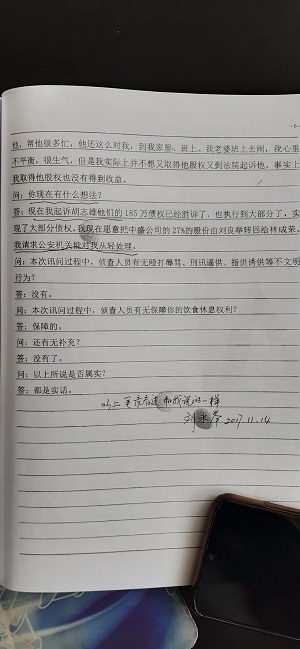 他，帮他很多忙，他还这么对我，到我家里、班上、我老婆班上去闹，我心里
不平衡，很生气，但是我实际上并不想又取得他股权又到法院起诉他，事实上
我取得他股权也没有得到收益。
问：你现在有什么想法？
答：现在我起诉胡志雄他们的185万债权已经胜诉了，也执行到大部分了，实
现了大部分债权，我现在愿意把中盛公司的27%的股份由刘良举转回给林成荣，
我请求公安机关能对我从轻处理。
问：本次讯问过程中，侦查人员有无殴打辱骂、刑讯逼供、指供诱供等不文明
行为？
答：没有。
问：本次讯问过程中，侦查人员有无保障你的饮食休息权利？
答：保障的。
问：还有无补充？
答：没有了。
问：以上所说是否属实？
答：都是实话。
以上笔录看过和我说的一样
2017.11.14